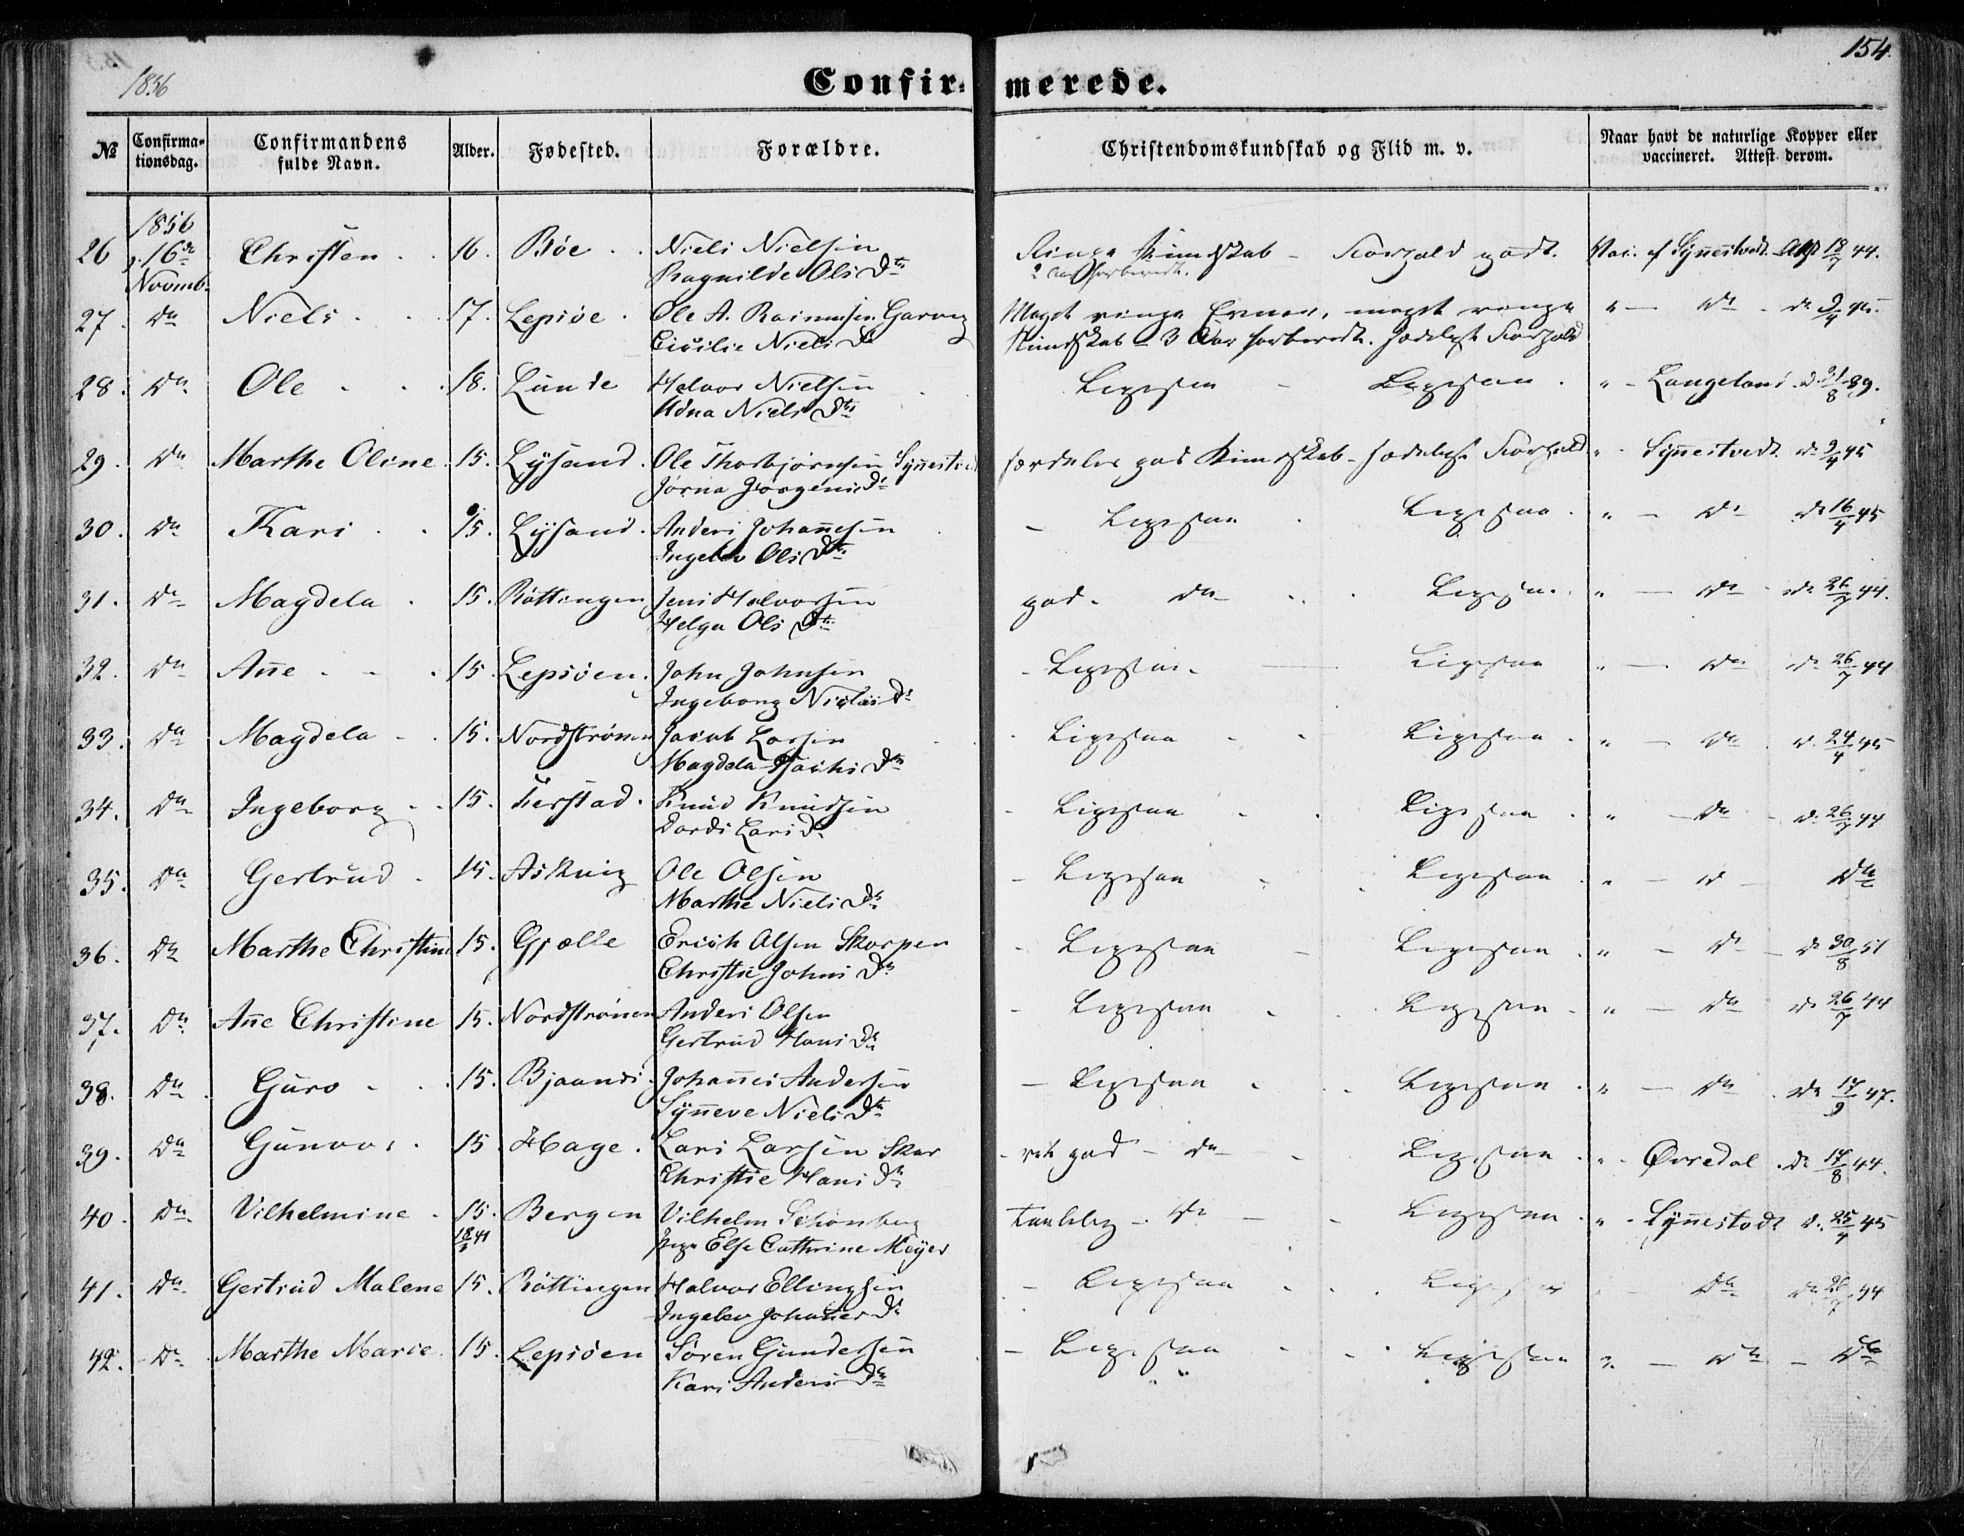 154
1856
Confirmerede.
№ Confirmationsdag. Confirmandens fulde Navn. Alder. Fødested. Forældre. Christendomskundskab og Flid m. v. Naar havt de naturlige Kopper eller vaccineret. Attest derom.
1856
26 16de Novmb. Christen 16. Bøe Niels Nielsen Ringe Kundskab - Forhold godt. Vac. af Synnestvedt Att 18/7 44.
Ragnilde Ols Dtr 2 Aar forberedt.
27. Do Niels 17. Lepsøe Ole A. Rasmussen Garvig Meget ringe Evner, meget ringe " - Do - d. 9/4 45.
Cicilie Niels Dr Kundskab - 3 Aar forberedt. Sædeligt Forhold
28. Do Ole 18. Lunde Halvor Nielsen Ligesaa - Ligesaa " - Langeland d. 21/8 39.
Adna Niels Dtr
29. Do Marthe Oline 15. Lysand. Ole Thorbjørnsen Synnestv særdeles god Kundskab - sædeligt Forhold " - Synnestvedt d. 9/4 45
Jørna Jørgens Dr
30. Do Kari 15. Lysand. Anders Johannesen - Ligesaa Ligesaa " - Do d. 16/4 45
Ingeb. Ols Dtr
31. Do Magdela 15. Røttingen Jens Halvorsen god - Do Ligesaa " - Do - d. 26/7 44.
Helga Ols Dtr
32. Do Ane 15. Lepsøen. John Johnsen - Ligesaa. Ligesaa " - Do d. 26/7 44
Ingeborg Niclas Dr
33. Do Magdela 15. Nordstrønen Jacob Larsen - Ligesaa Ligesaa " - Do d. 24/4 45
Magdela Dr
34. Do Ingeborg 15. Ferstad. Knud Knudsen - Ligesaa Ligesaa " - Do - d. 26/7 44
Dordi Lars Dr
35. Do Gertrud 15. Askvig Ole Olsen - Ligesaa Ligesaa " - D - Do
Marthe Niels Dr
36. Do Marthe Christine 15. Gjælle Erich Olsen Skorpen - Ligesaa - Ligesaa " - Do - d. 30/8 51
Christie Johns Dr
37. Do Ane Christine 15. Nordstrønen Anders Olsen - Ligesaa Ligesaa " - Do d. 26/7 44
Gertrud Hans Dr
38. Do Guro 15. Bjaanæs. Johannes Andersen - Ligesaa Ligesaa " - Do d. 17/9 47.
Synneve Niels Dtr
39. Do Gunvor 15. Hage. Lars Larsen Skar - ret god - Do Ligesaa " - Øvredal d. 17/8 44.
Christie Hans Dr
40. Do Vilhelmine 15. Bergen Vilhelm Schonberg taalelig - Do - Ligesaa " - Synnestvedt d. 25/4 45
18/ 41 Pige Else Cathrine Meyer
41. Do Gertrud Malene 15. Røttingen Halvor Ellingsen - Ligesaa Ligesaa Do d. 26/7 44
Ingebor Johannes Dr
42. Do Marthe Marie 15. Lepsøen Søren Gundersen - Ligesaa Ligesaa " - Do - Do
Kari Anders Dr